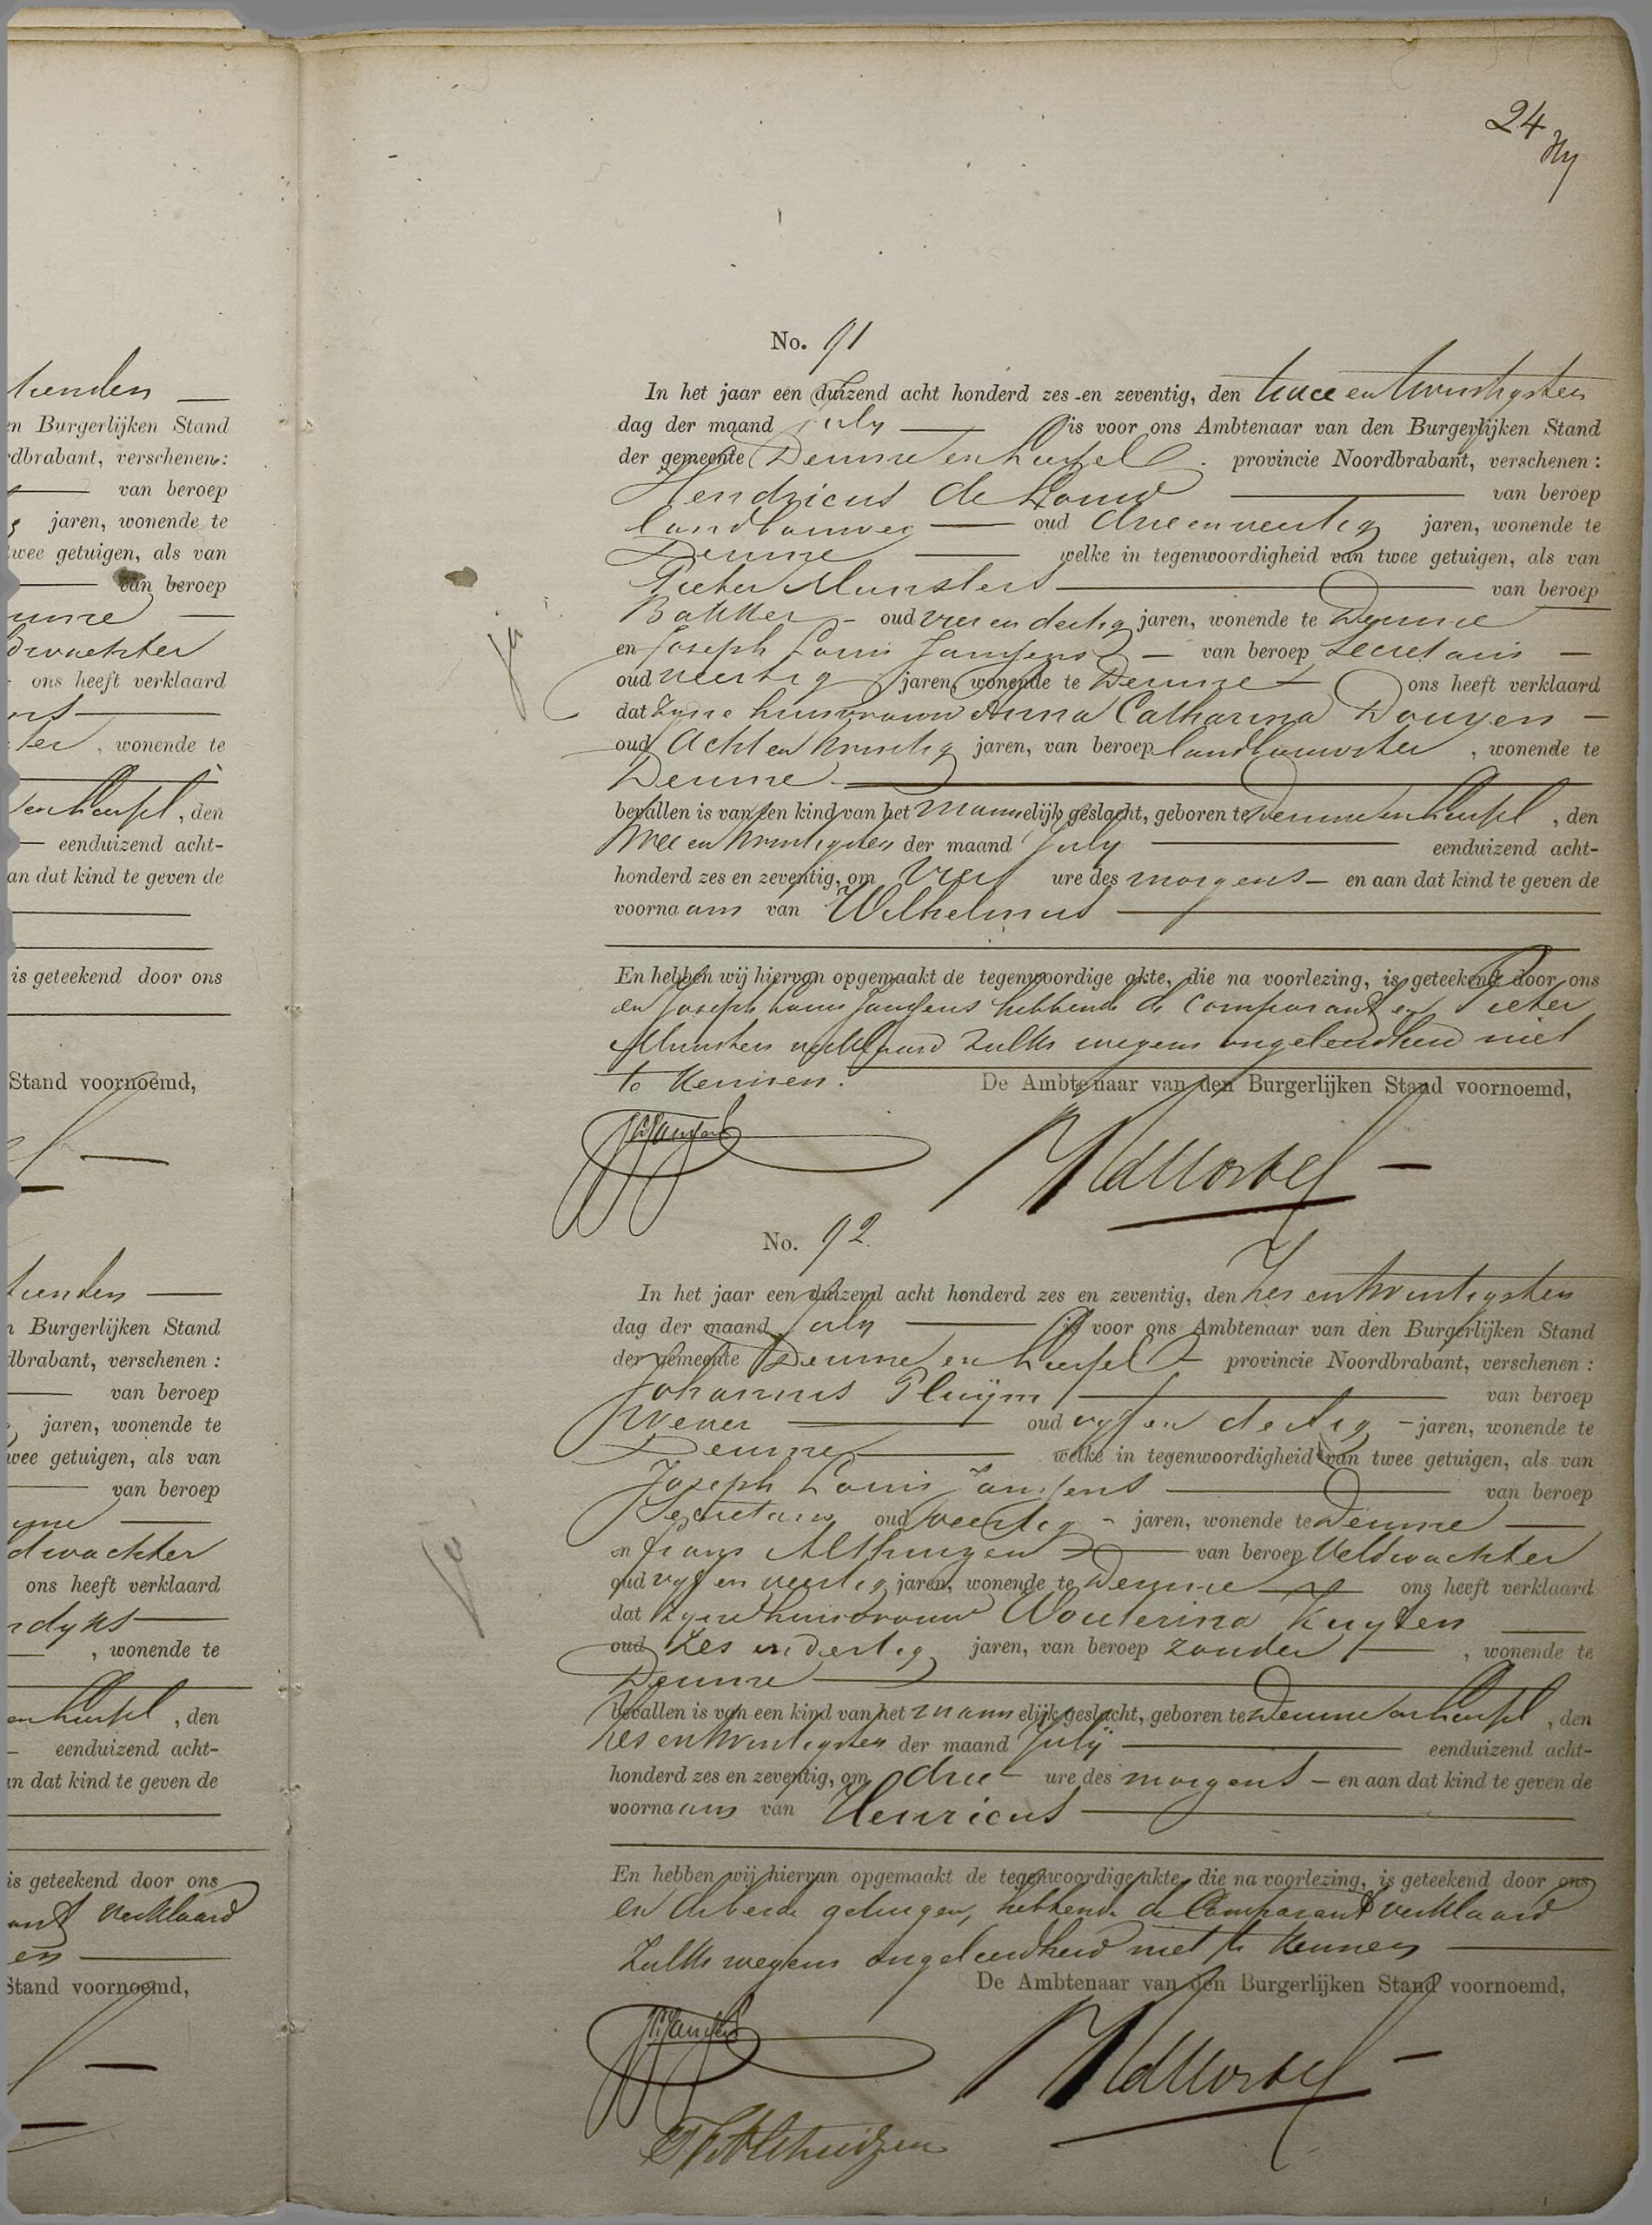 tienden
n Burgerlijken Stand
rdbrabant, verschenen:
van beroep
jaren, wonende te
twee getuigen, als van
van beroep
urne
dwachter
ons heeft verklaard
ter, wonende te
en Liessel, den
eenduizend acht-
an dat kind te geven de
is geteekend door ons
Stand voornoemd,
tienden
n Burgerlijken Stand
dbrabant, verschenen:
van beroep
jaren, wonende te
wee getuigen, als van
van beroep
urne
dwachter
ons heeft verklaard
ndyks
, wonende te
en Liessel, den
eenduizend acht-
an dat kind te geven de
is geteekend door ons
ant verklaard
en
Stand voornoemd,
24
No. 91
In het jaar een duizend acht honderd zes en zeventig, den twee en twintigsten
dag der maand July is voor ons Ambtenaar van den Burgerlijken Stand
der gemeente Deurne en Liessel provincie Noordbrabant, verschenen:
Hendricus de Louw van beroep
landbouwer oud drie en veertig jaren, wonende te
Deurne welke in tegenwoordigheid van twee getuigen, als van
Pieter Munsters van beroep
Bakker oud vier en dertig jaren, wonende te Deurne
en Joseph Louis Janssens van beroep Secretaris
oud veertig jaren, wonende te Deurne ons heeft verklaard
dat zyne huisvrouw Anna Catharina Douven
oud acht en twintig jaren, van beroep landbouwster, wonende te
Deurne
bevallen is van een kind van het mannelijk geslacht, geboren te Deurne en Liessel, den
twee en twintigsten der maand July eenduizend acht-
honderd zes en zeventig, om vier ure des morgens en aan dat kind te geven de
voornaam van Wilhelmus
En hebben wij hiervan opgemaakt de tegenwoordige akte, die na voorlezing, is geteekend door ons
en Joseph Louis Janssens hebbende de comparant en Pieter
Munsters verklaard zulks wegens ongeleerdheid niet
te kennen.
De Ambtenaar van den Burgerlijken Stand voornoemd,
JLJanssens
ja
No. 92.
In het jaar een duizend acht honderd zes en zeventig, den zes en twintigsten
dag der maand July is voor ons Ambtenaar van den Burgerlijken Stand
der gemeente Deurne en Liessel provincie Noordbrabant, verschenen:
Johannes Pluijm van beroep
Wever oud vyf en dertig jaren, wonende te
Deurne welke in tegenwoordigheid van twee getuigen, als van
Joseph Louis Janssens van beroep
Secretaris oud veertig jaren, wonende te Deurne
en Frans Althuizen van beroep Veldwachter
oud vyf en veertig jaren, wonende te Deurne ons heeft verklaard
dat zyne huisvrouw Wouterina Kuyten
oud zes en dertig jaren, van beroep zonder, wonende te
Deurne
bevallen is van een kind van het mannelijk geslacht, geboren te Deurne en Liessel, den
zes en twintigsten der maand July eenduizend acht-
honderd zes en zeventig, om drie ure des morgens en aan dat kind te geven de
voornaam van Henricus
En hebben wij hiervan opgemaakt de tegenwoordige akte, die na voorlezing, is geteekend door ons
en de beide getuigen, hebbende de Comparant verklaard
zulks wegens ongeleerdheid niet te kennen
De Ambtenaar van den Burgerlijken Stand voornoemd,
JLJanssens
F Althuizen
ja